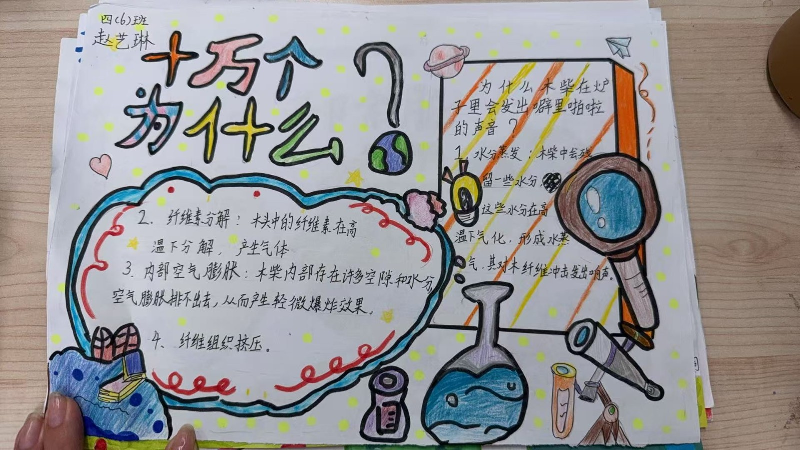 四(6)班
赵艺琳
十万个
为什么?
为什么木柴在炉
子里会发出噼里啪啦
的声音?
1、水分蒸发:木柴中会残
留一些水分,
这些水分在高
温下气化,形成水蒸
气,其对木纤维冲击发出响声。
2、纤维素分解:木头中的纤维素在高
温下分解,产生气体
3、内部空气膨胀:木柴内部存在许多空隙和水分
空气膨胀排不出去,从而产生轻微爆炸效果。
4、纤维组织挤压。